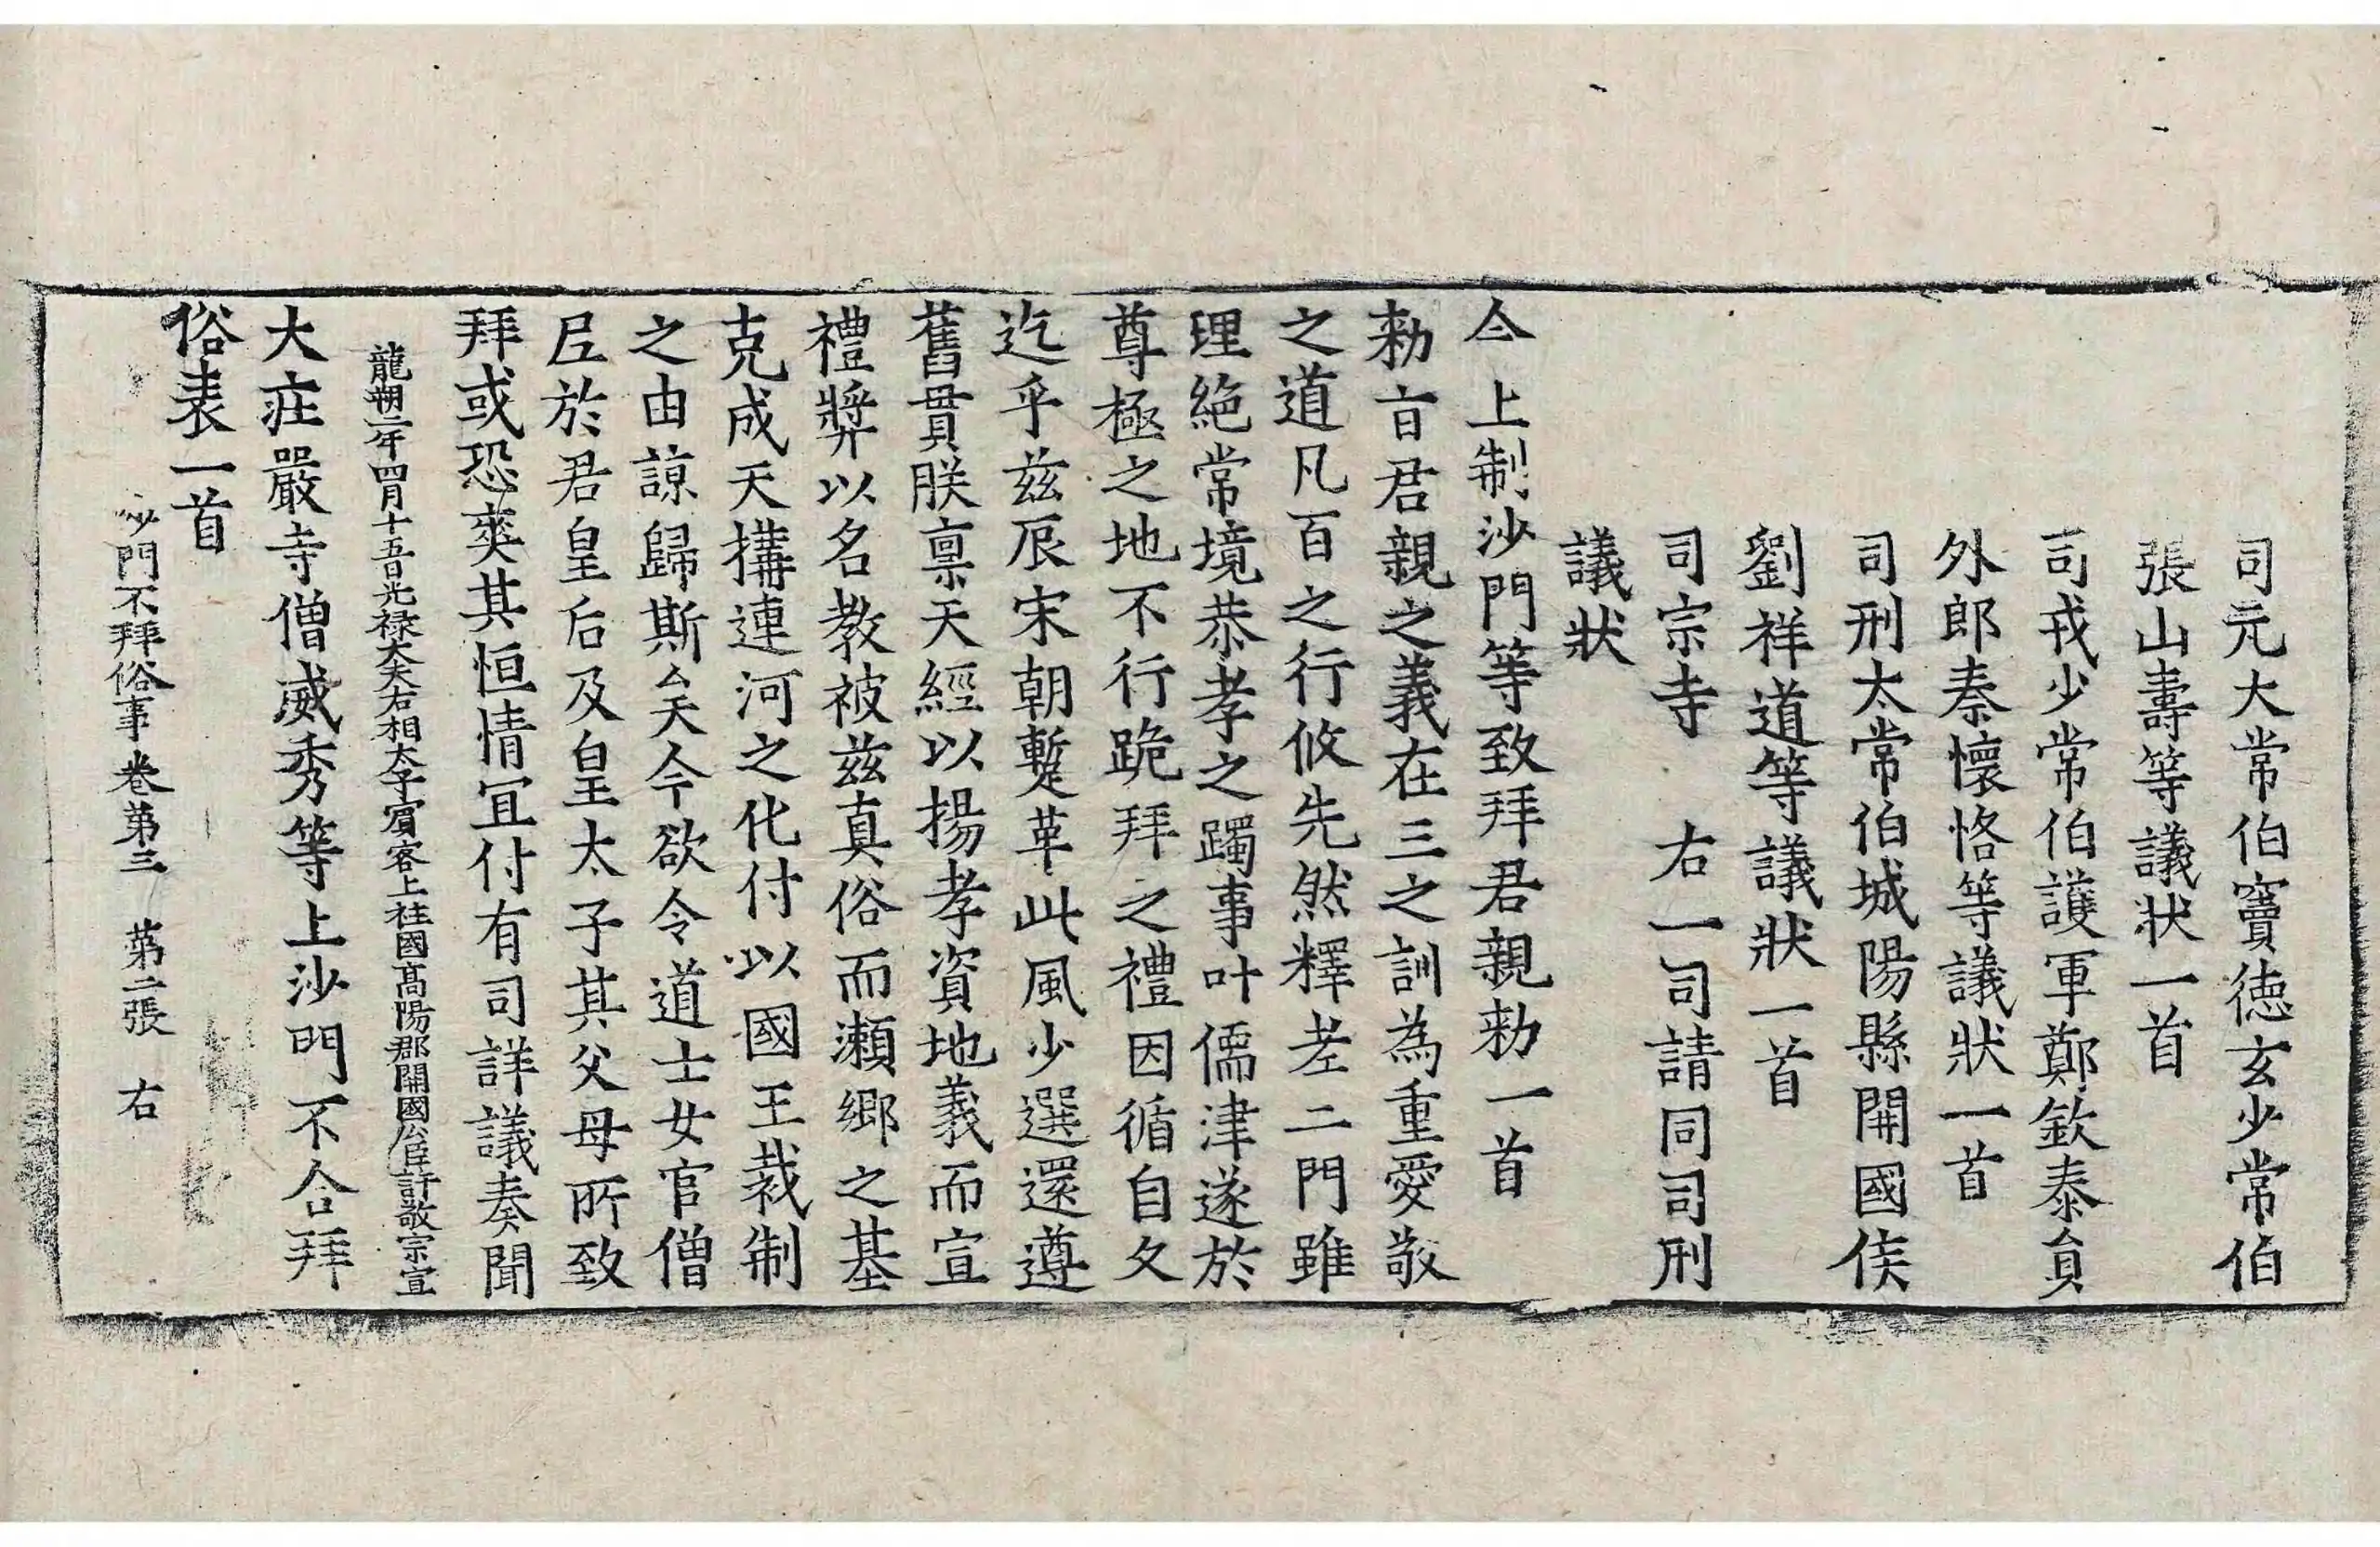 司元大常伯竇徳玄少常伯
張山壽等議狀一首
司戎少常伯護軍鄭欽泰貟
外郎秦懷恪等議狀一首
司刑太常伯城陽縣開國侯
劉祥道等議狀一首
司宗寺 右一司請同司刑
議狀
今上制沙門等致拜君親勑一首
勑旨君親之義在三之訓為重愛敬
之道凡百之行攸先然釋老二門雖
理絶常境恭孝之躅事叶儒津遂於
尊極之地不行跪拜之禮因循自久
迄乎茲辰宋朝蹔革此風少選還遵
舊貫朕稟天經以揚孝資地義而宣
禮奬以名教被茲真俗而瀨鄉之基
克成天構連河之化付以國王裁制
之由諒歸斯矣今欲令道士女官僧
尼於君皇后及皇太子其父母所致
拜或恐爽其恒情宜付有司詳議奏聞
龍朔二年四月十五日光禄大夫右相太子賓客上柱國高陽郡開國公臣許敬宗宣
大莊嚴寺僧威秀等上沙門不合拜
俗表一首
沙門不拜俗事卷第三 第二張 右